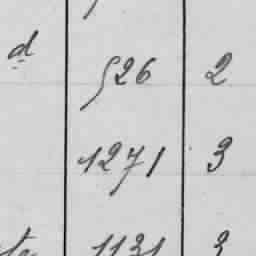 d 526 2
1271 3
te 1131 3